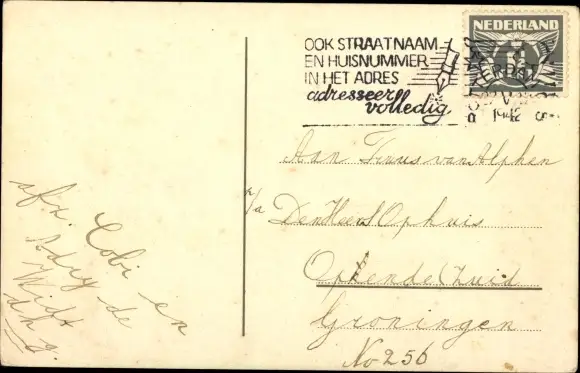 NEDERLAND
OOK STRAATNAAM
EN HUISNUMMER
IN HET ADRES
adresseer
volledig
1942
Aan Truus van Alphen
p/a Den Heer Ophuis
Opende (Zuid)
Groningen
No 256
afz. Cobi en
de